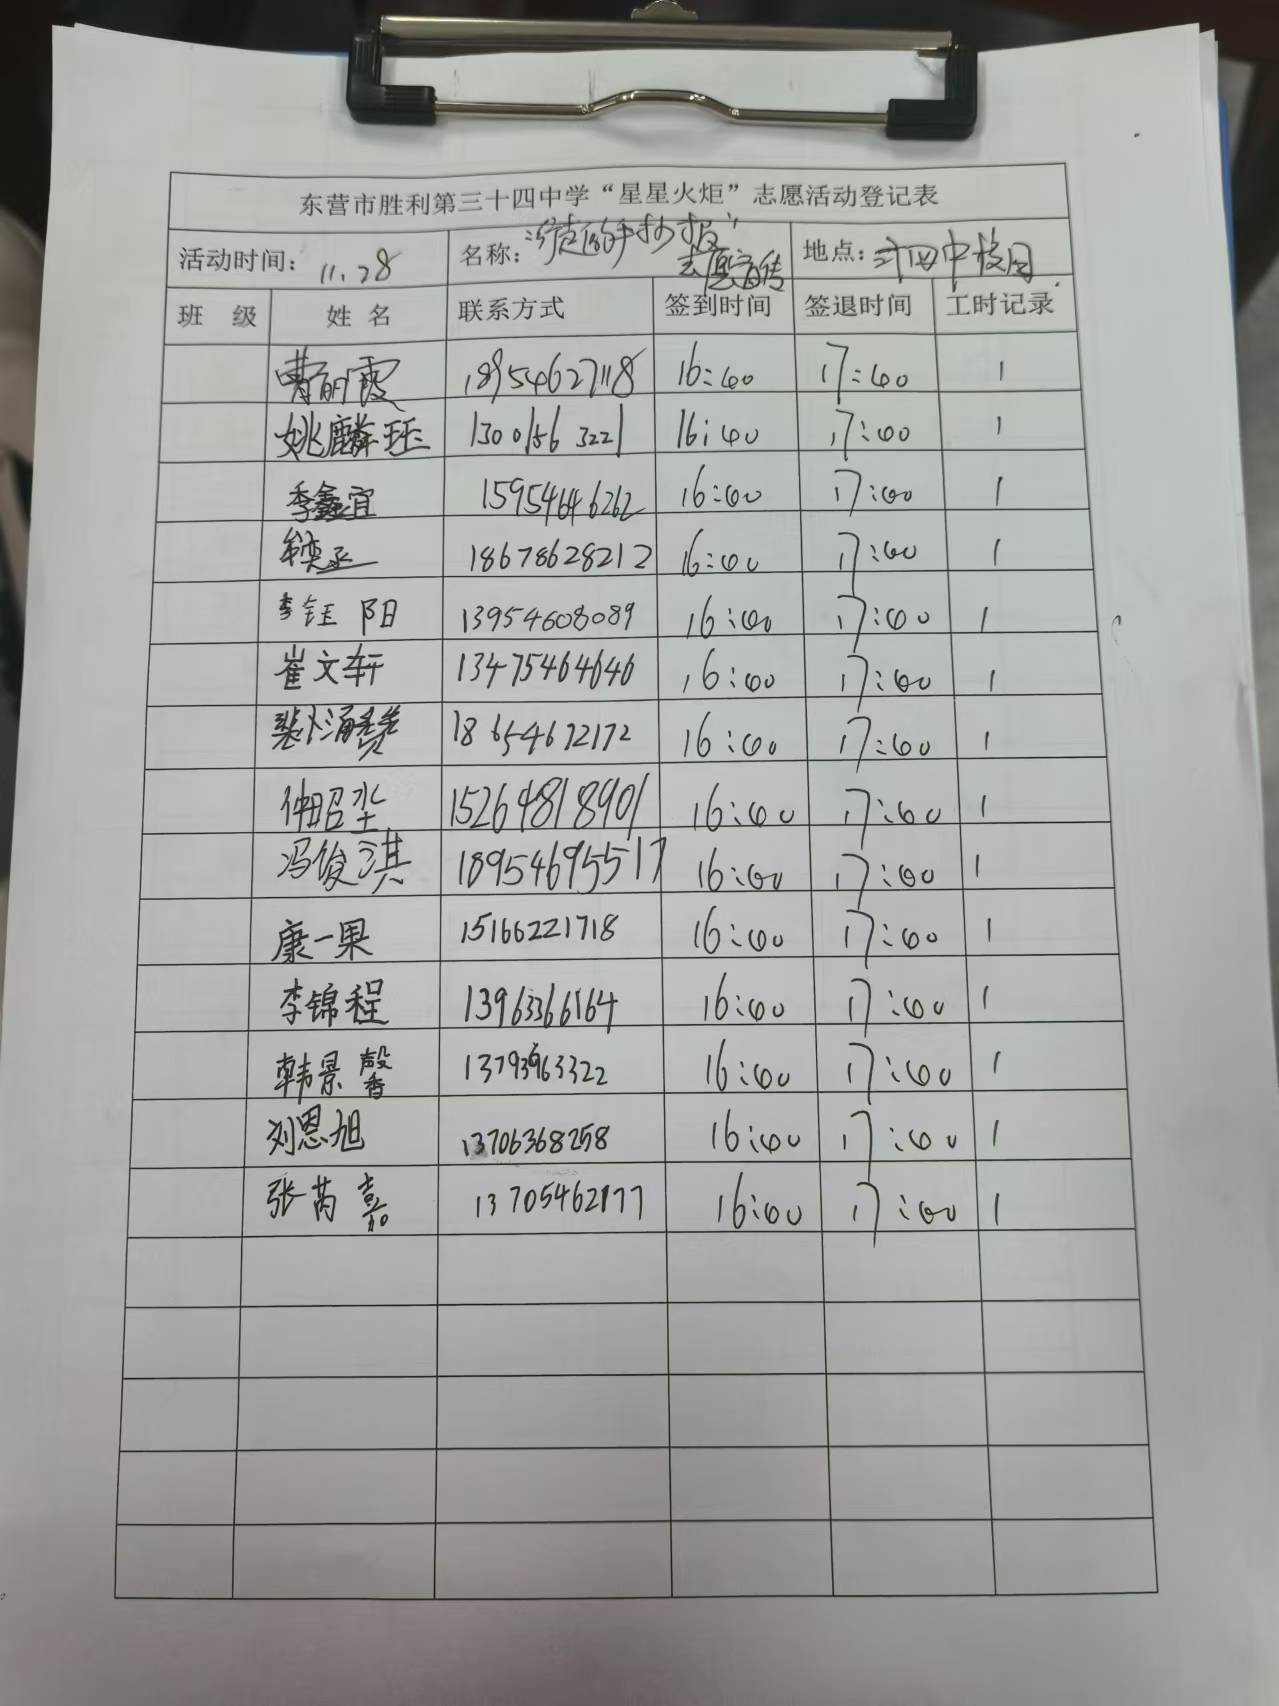 东营市胜利第三十四中学“星星火炬”志愿活动登记表
活动时间：11.28 名称：“手抄报” 志愿宣传 地点：三十四中校园
班 级 姓 名 联系方式 签到时间 签退时间 工时记录
曹丽霞 18954627118 16:00 17:00 1
姚麟珏 13001563221 16:00 17:00 1
季鑫宜 15954646262 16:00 17:00 1
18678628212 16:00 17:00 1
李钰阳 13954608089 16:00 17:00 1
崔文轩 13475464646 16:00 17:00 1
18654672172 16:00 17:00 1
仲昭 15264818901 16:00 17:00 1
冯俊淇 18954695517 16:00 17:00 1
康一果 15166221718 16:00 17:00 1
李锦程 13963366164 16:00 17:00 1
韩景馨 13793963322 16:00 17:00 1
刘恩旭 13706368258 16:00 17:00 1
张芮嘉 13705462177 16:00 17:00 1